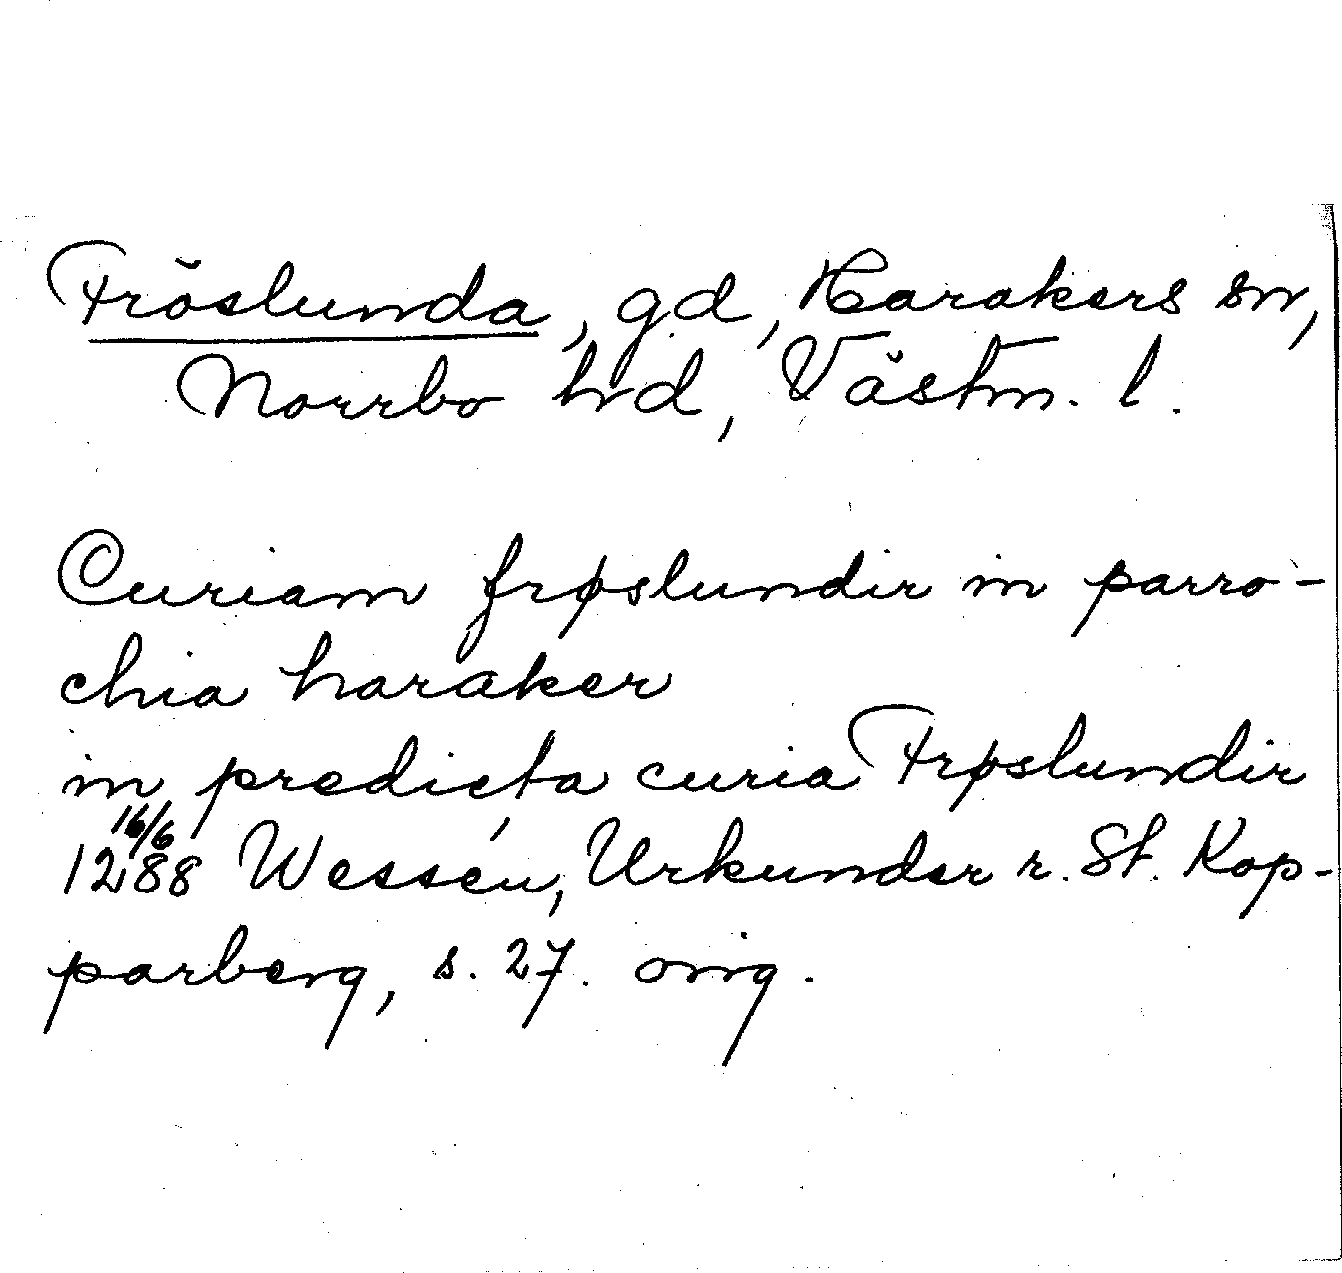 Fröslunda, gd, Harakers sn,
Norrbo hd, Västm. l.
Curiam frøslundir in parro-
chia haraker
in predicta curia Frøslundir
16/6
1288 Wessén, Urkunder r. St. Kop-
parberg, s. 27. orig.